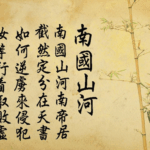 南國山河
南國山河南帝居
截然定分在天書
如何逆虜來侵犯
汝等行看取敗虛